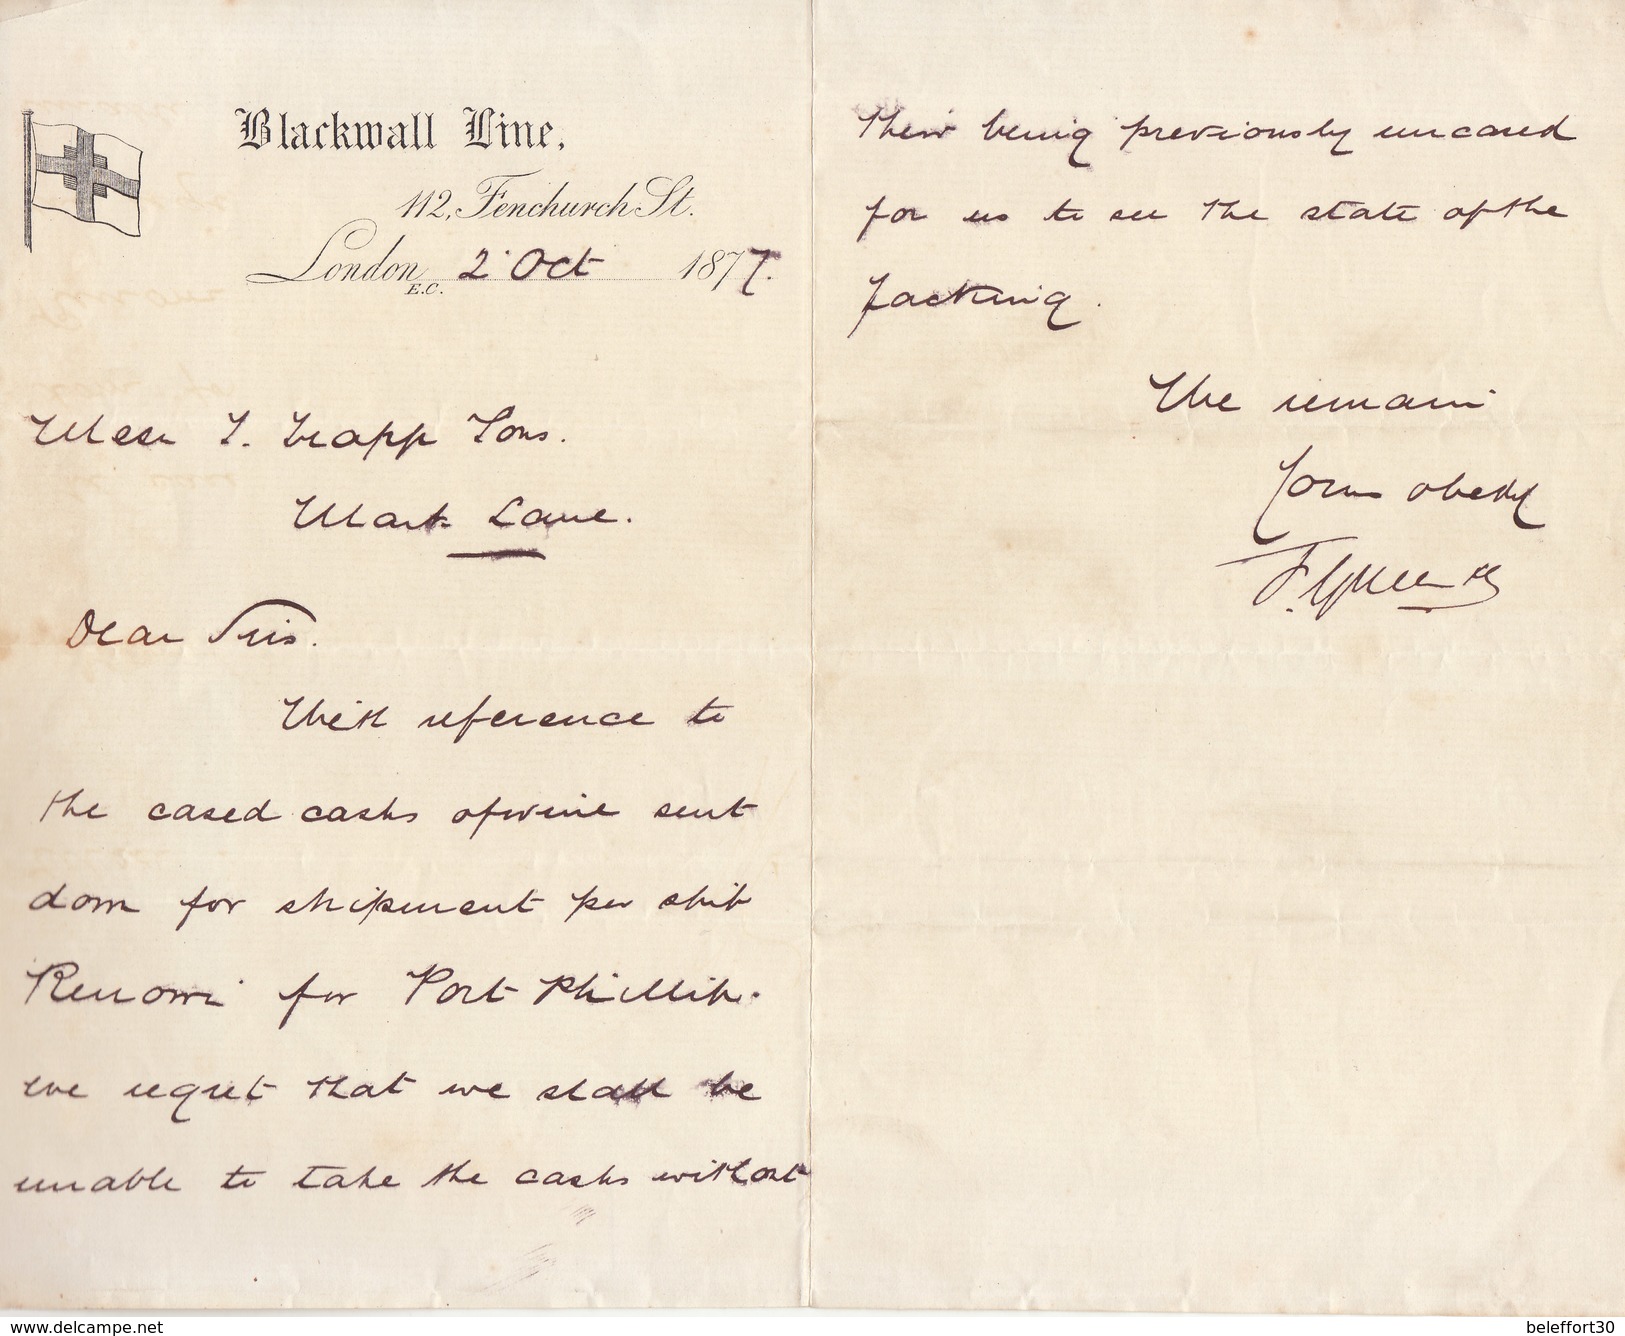 Blackwall Line,
112, Fenchurch St.
London E.C. 2 Oct 1877.
Mess T. Trapp Sons.
Mark Lane.
Dear Sirs.
With reference to
the cased casks of wine sent
down for shipment per ship
Renown for Port Phillip.
we regret that we shall be
unable to take the casks without
their being previously uncased
for us to see the state of the
packing.
We remain
Yours obedly
F. Green & Co
www.delcampe.net
beleffort30